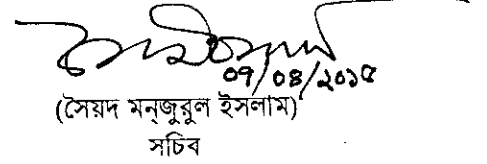 ০৭/০৪/২০১৫
(সৈয়দ মন্জুরুল ইসলাম)
সচিব